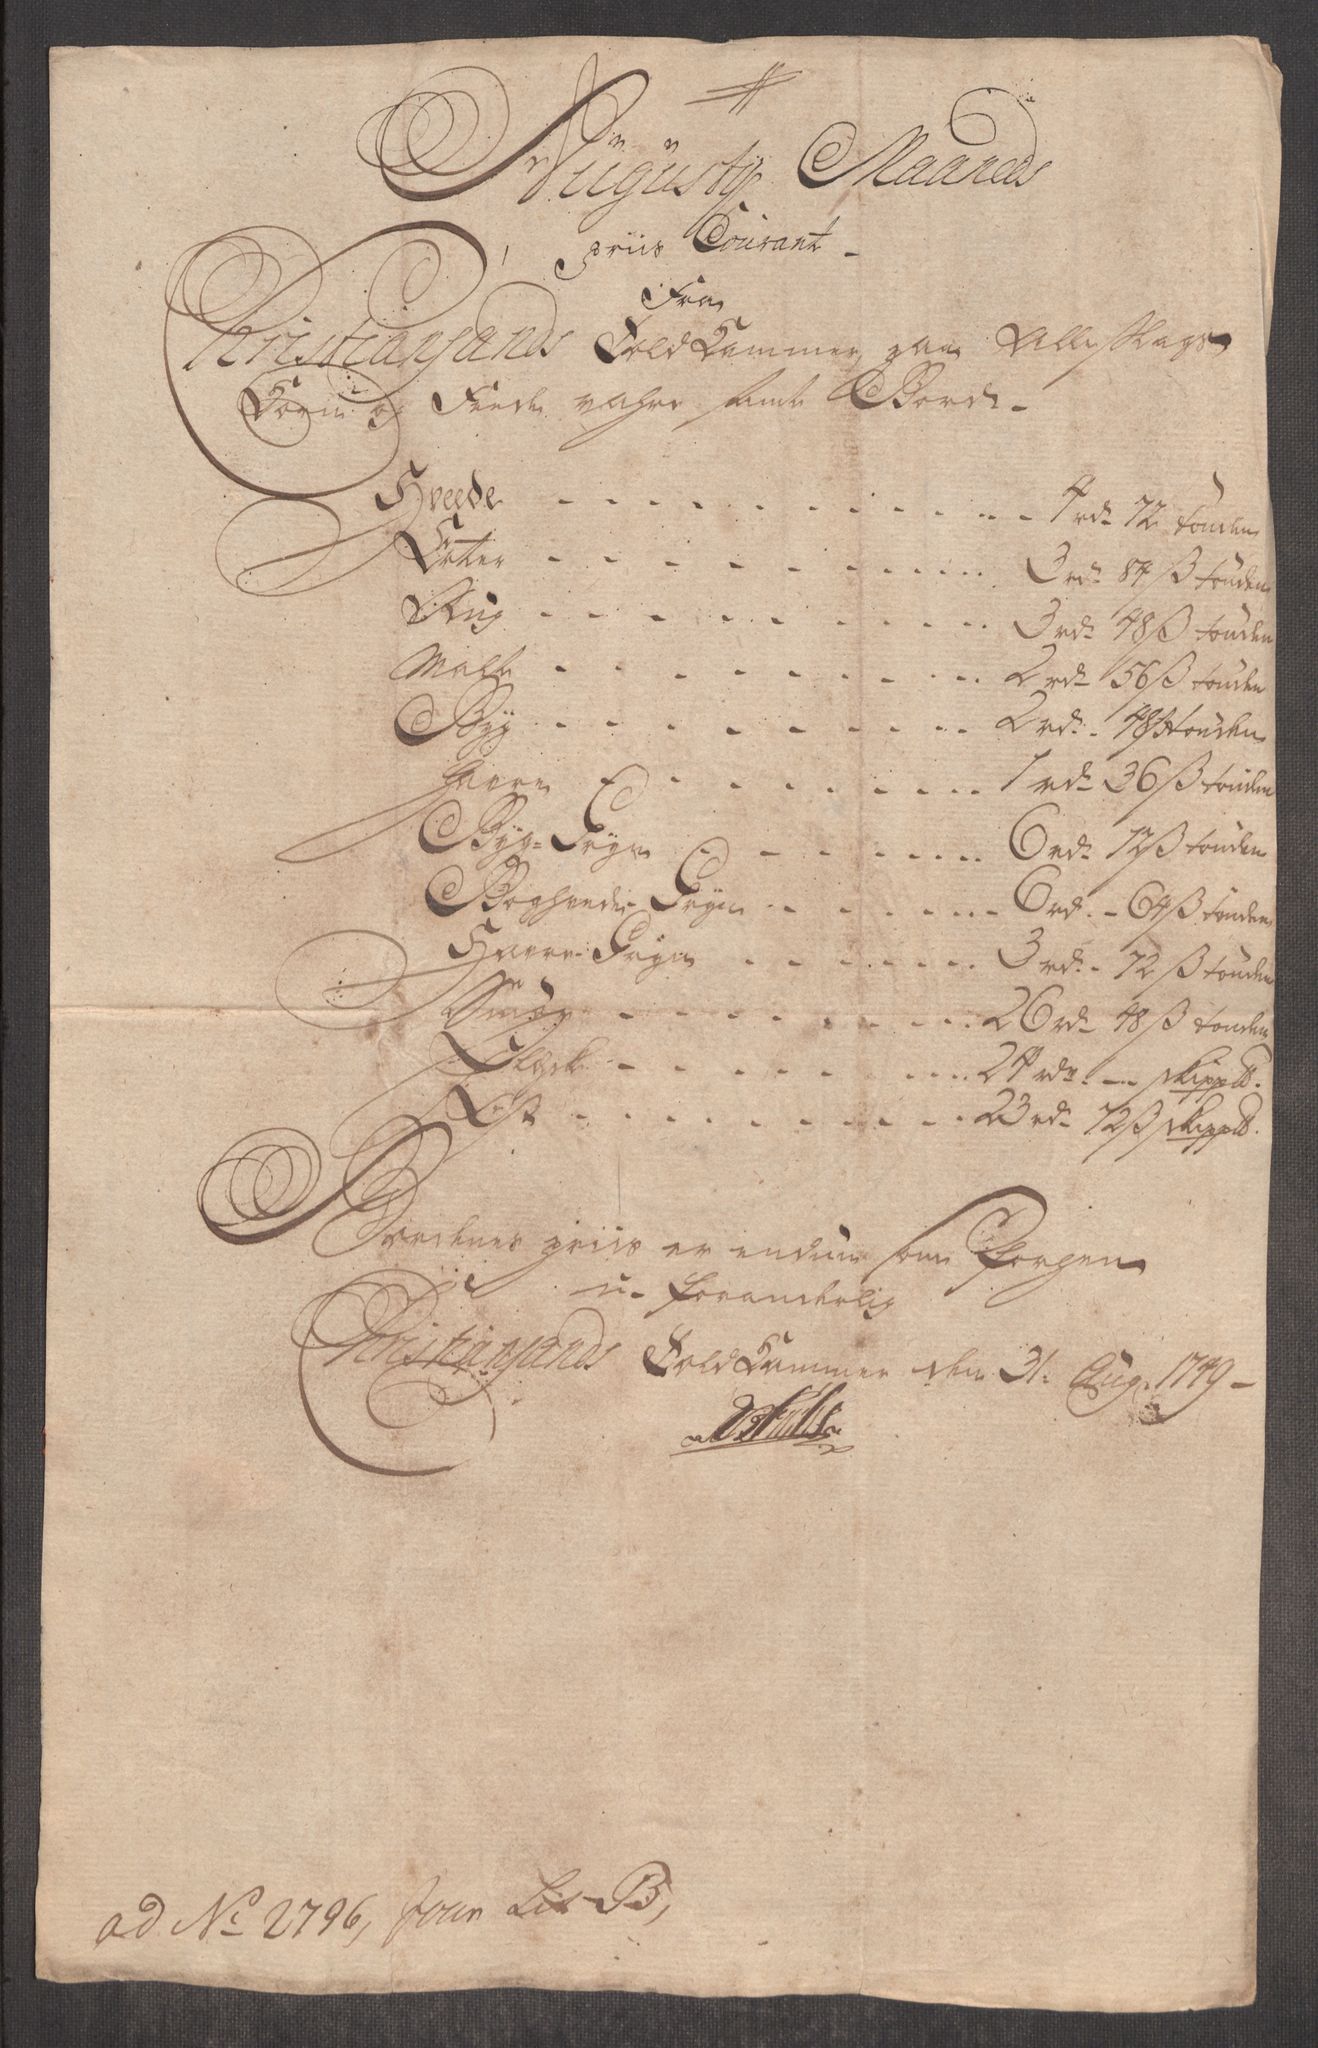 Augustÿ Maaneds
priis Courant
Fra
Christiansands Told Kammer, paa Alle slags
Korn og Feede vahre samt Bord.
Hvede - - - 4 rd 72 tønden
Erter - - - 3 rd 84 ß tønden
Rug - - - 3 rd 48 ß tønden
Malt - - - 2 rd 56 ß tønden
Byg - - - 2 rd 48 ß tønden
Havre - - - 1 rd 36 ß tønden
Byg-Gryn - - - 6 rd 12 ß tønden
Boghvede Gryn - - - 6 rd 64 ß tønden
Havre-Gryn - - - 3 rd 72 ß tønden
Smør - - - 26 rd 48 ß tønden
- - - 24 rd - skippd.
- - - 23 rd 72 ß skippd.
Bordenes priis er endnu som forrgen
u-foranderlig
Christiansands Told Kammer den 31. Aug. 1749
ad No 2796, Jour Lit B,